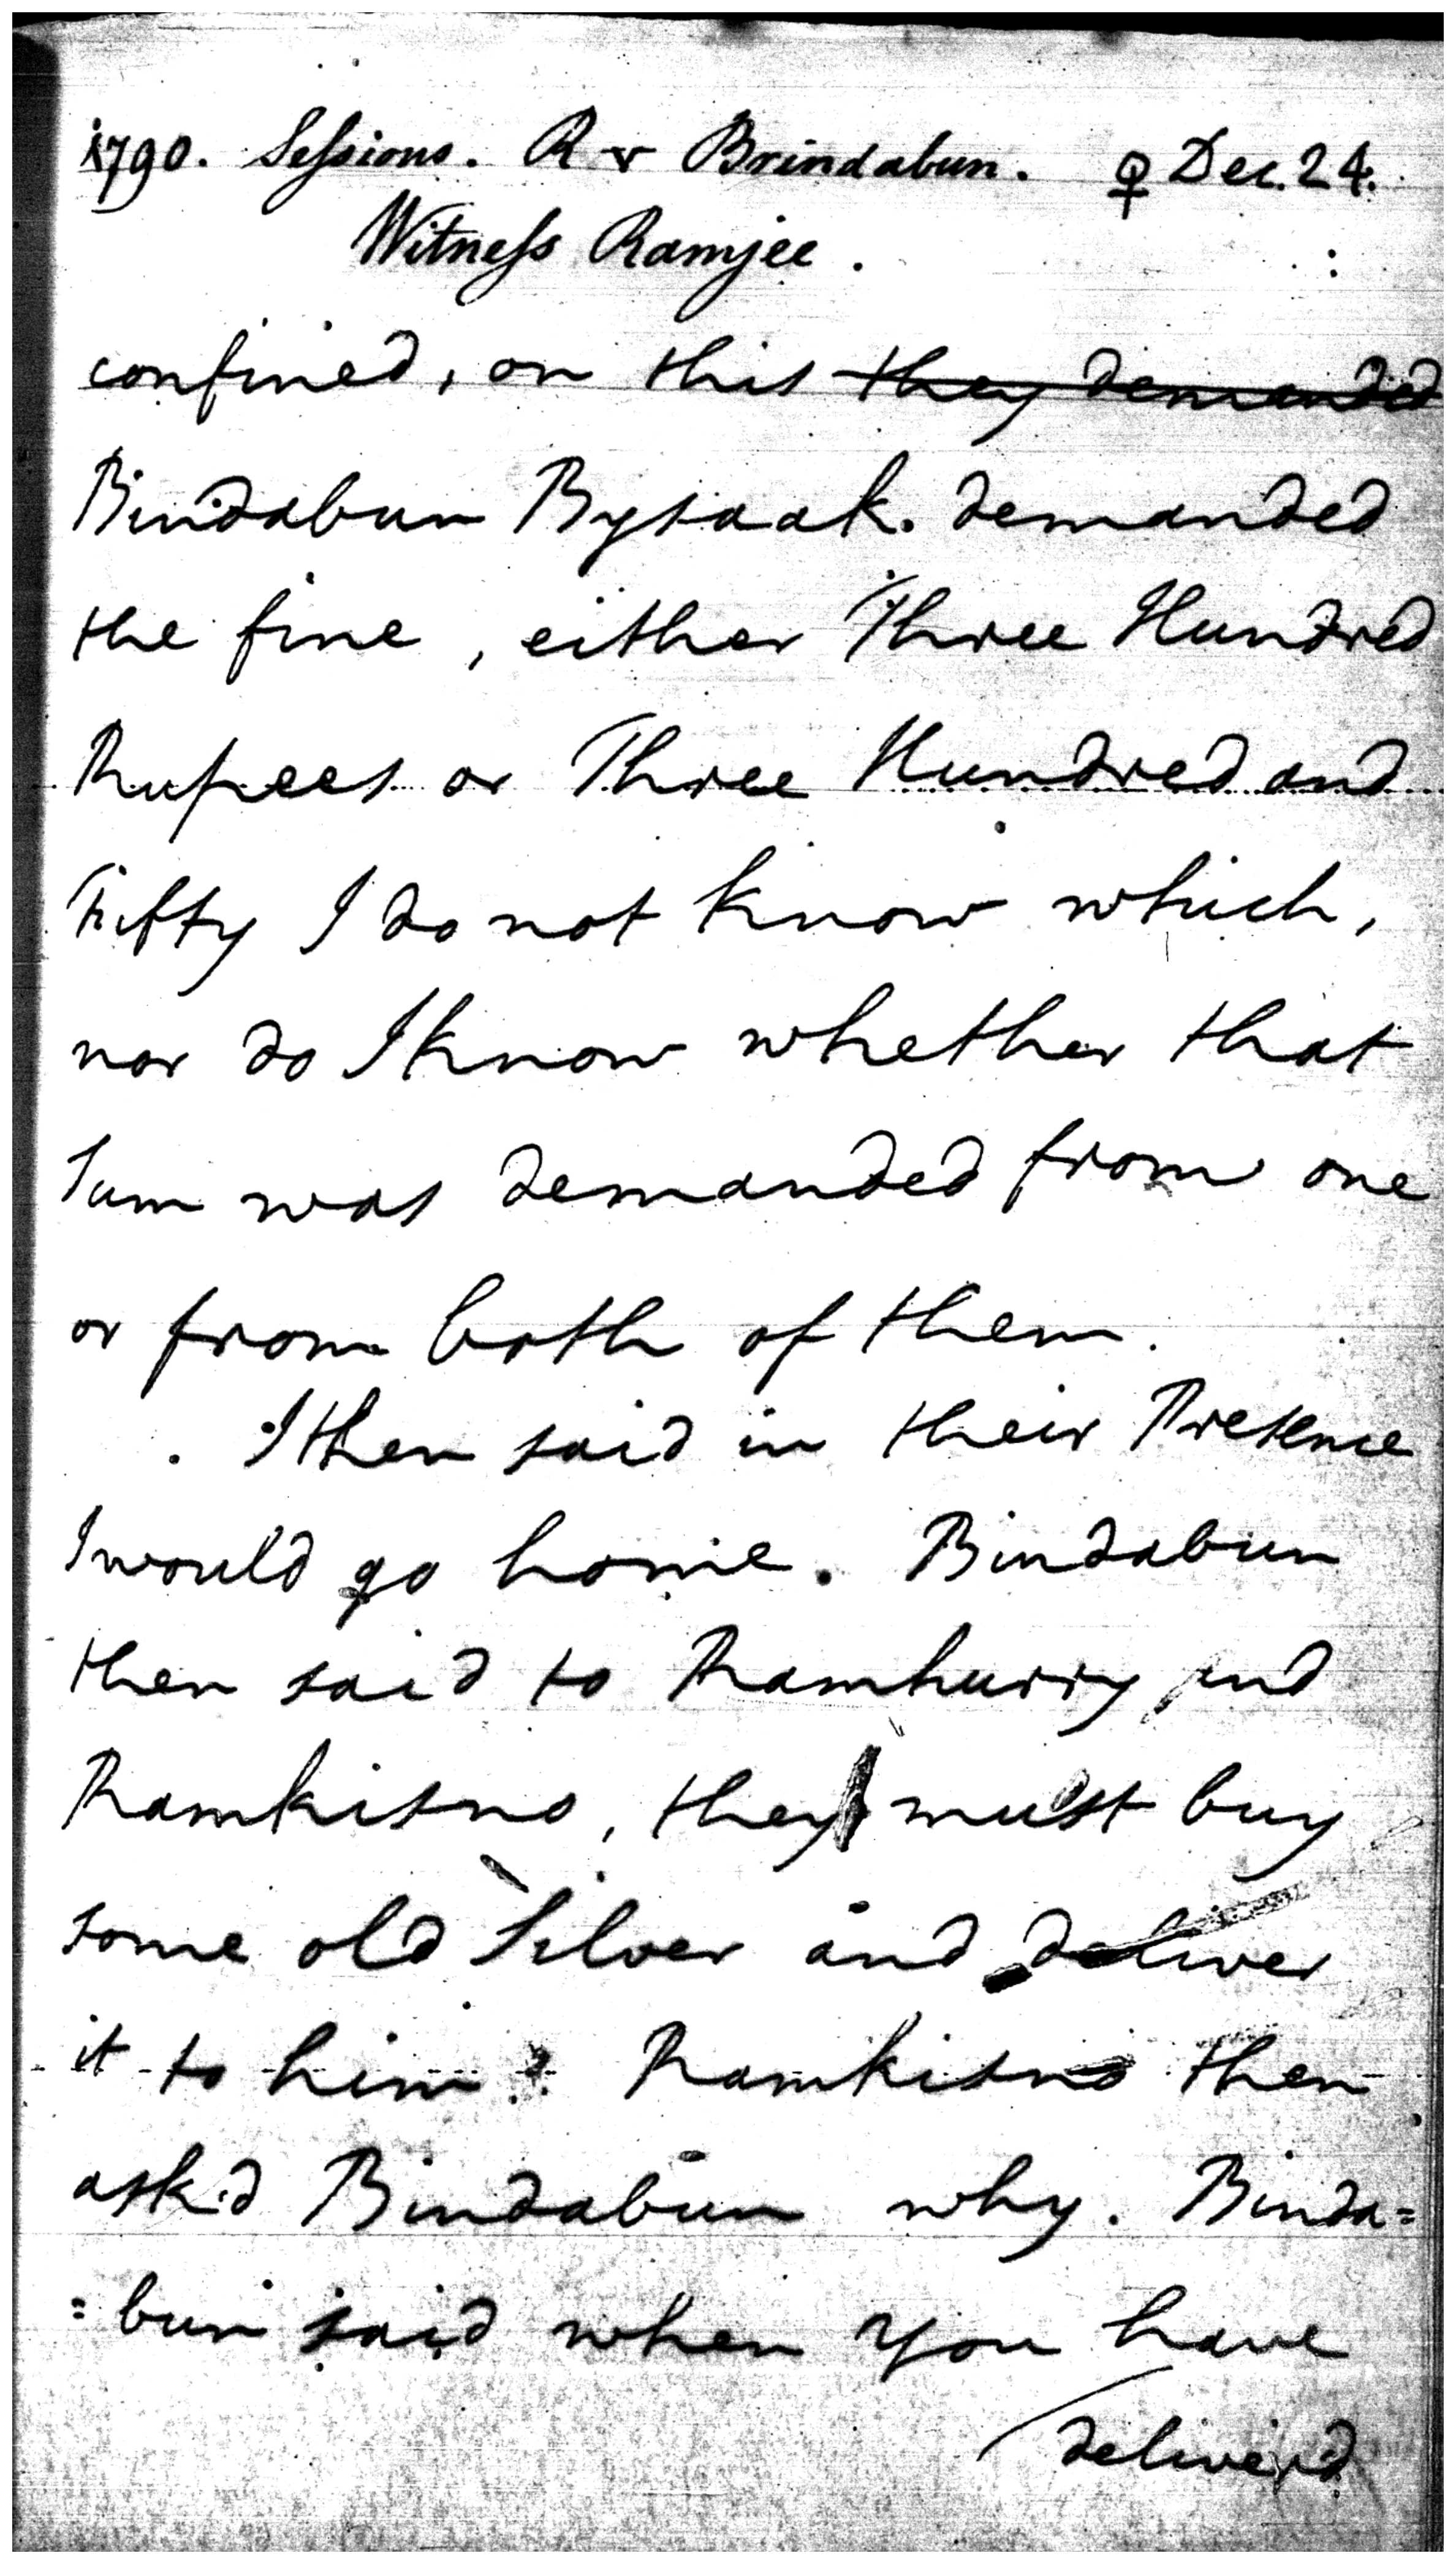 1790. Sessions. R v Brindabun. ♀ Dec. 24.
Witness Ramjee.
confined, on this they demanded
Bindabun Bysaak. demanded
the fine, either Three Hundred
Rupees or Three Hundred and
Fifty I do not know which,
nor do I know whether that
Sum was demanded from one
or from both of them.
I then said in their Presence
I would go home. Bindabun
then said to Ramhurry and
Ramkisno, they must buy
some old Silver and deliver
it to him. Ramkisno then
ask'd Bindabun why. Binda=
=bun said when you have
deliver'd